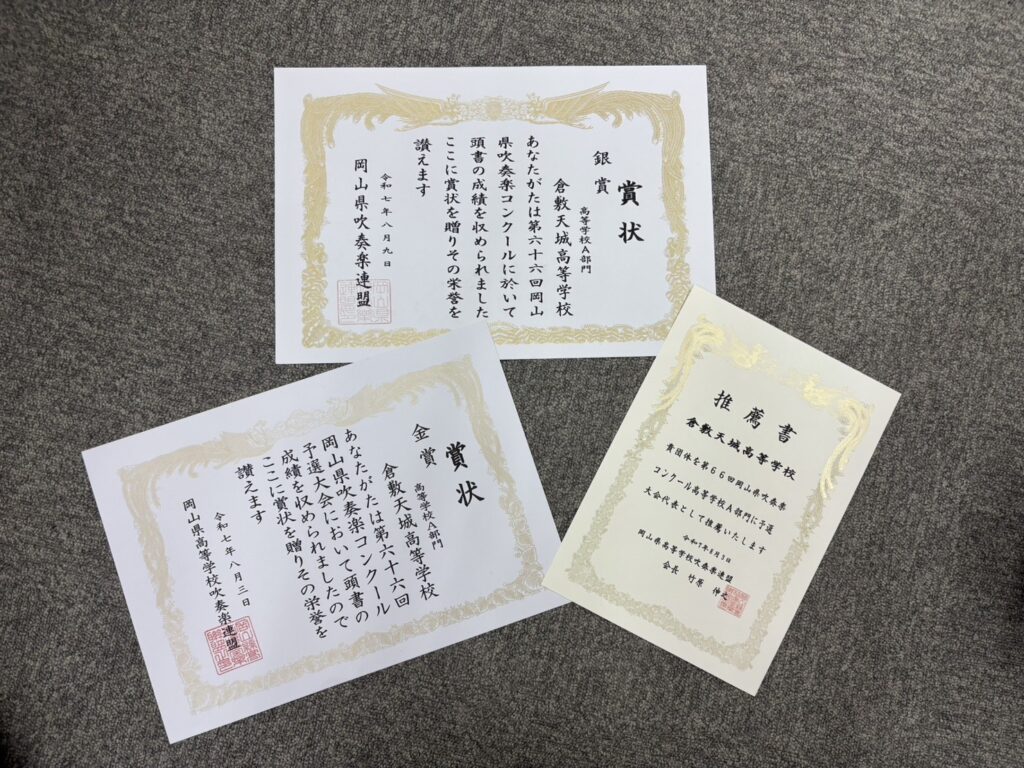 賞状
銀賞
高等学校A部門
倉敷天城高等学校
あなたがたは第六十六回岡山
県吹奏楽コンクールに於いて
頭書の成績を収められました
ここに賞状を贈りその栄誉を
讃えます
令和七年八月九日
岡山県吹奏楽連盟
賞状
金賞
高等学校A部門
倉敷天城高等学校
あなたがたは第六十六回
岡山県吹奏楽コンクール
予選大会において頭書の
成績を収められましたので
ここに賞状を贈りその栄誉を
讃えます
令和七年八月三日
岡山県高等学校吹奏楽連盟
推薦書
倉敷天城高等学校
貴団体を第66回岡山県吹奏楽
コンクール高等学校A部門に予選
大会代表として推薦いたします
令和7年8月3日
岡山県高等学校吹奏楽連盟
会長 竹原 伸之